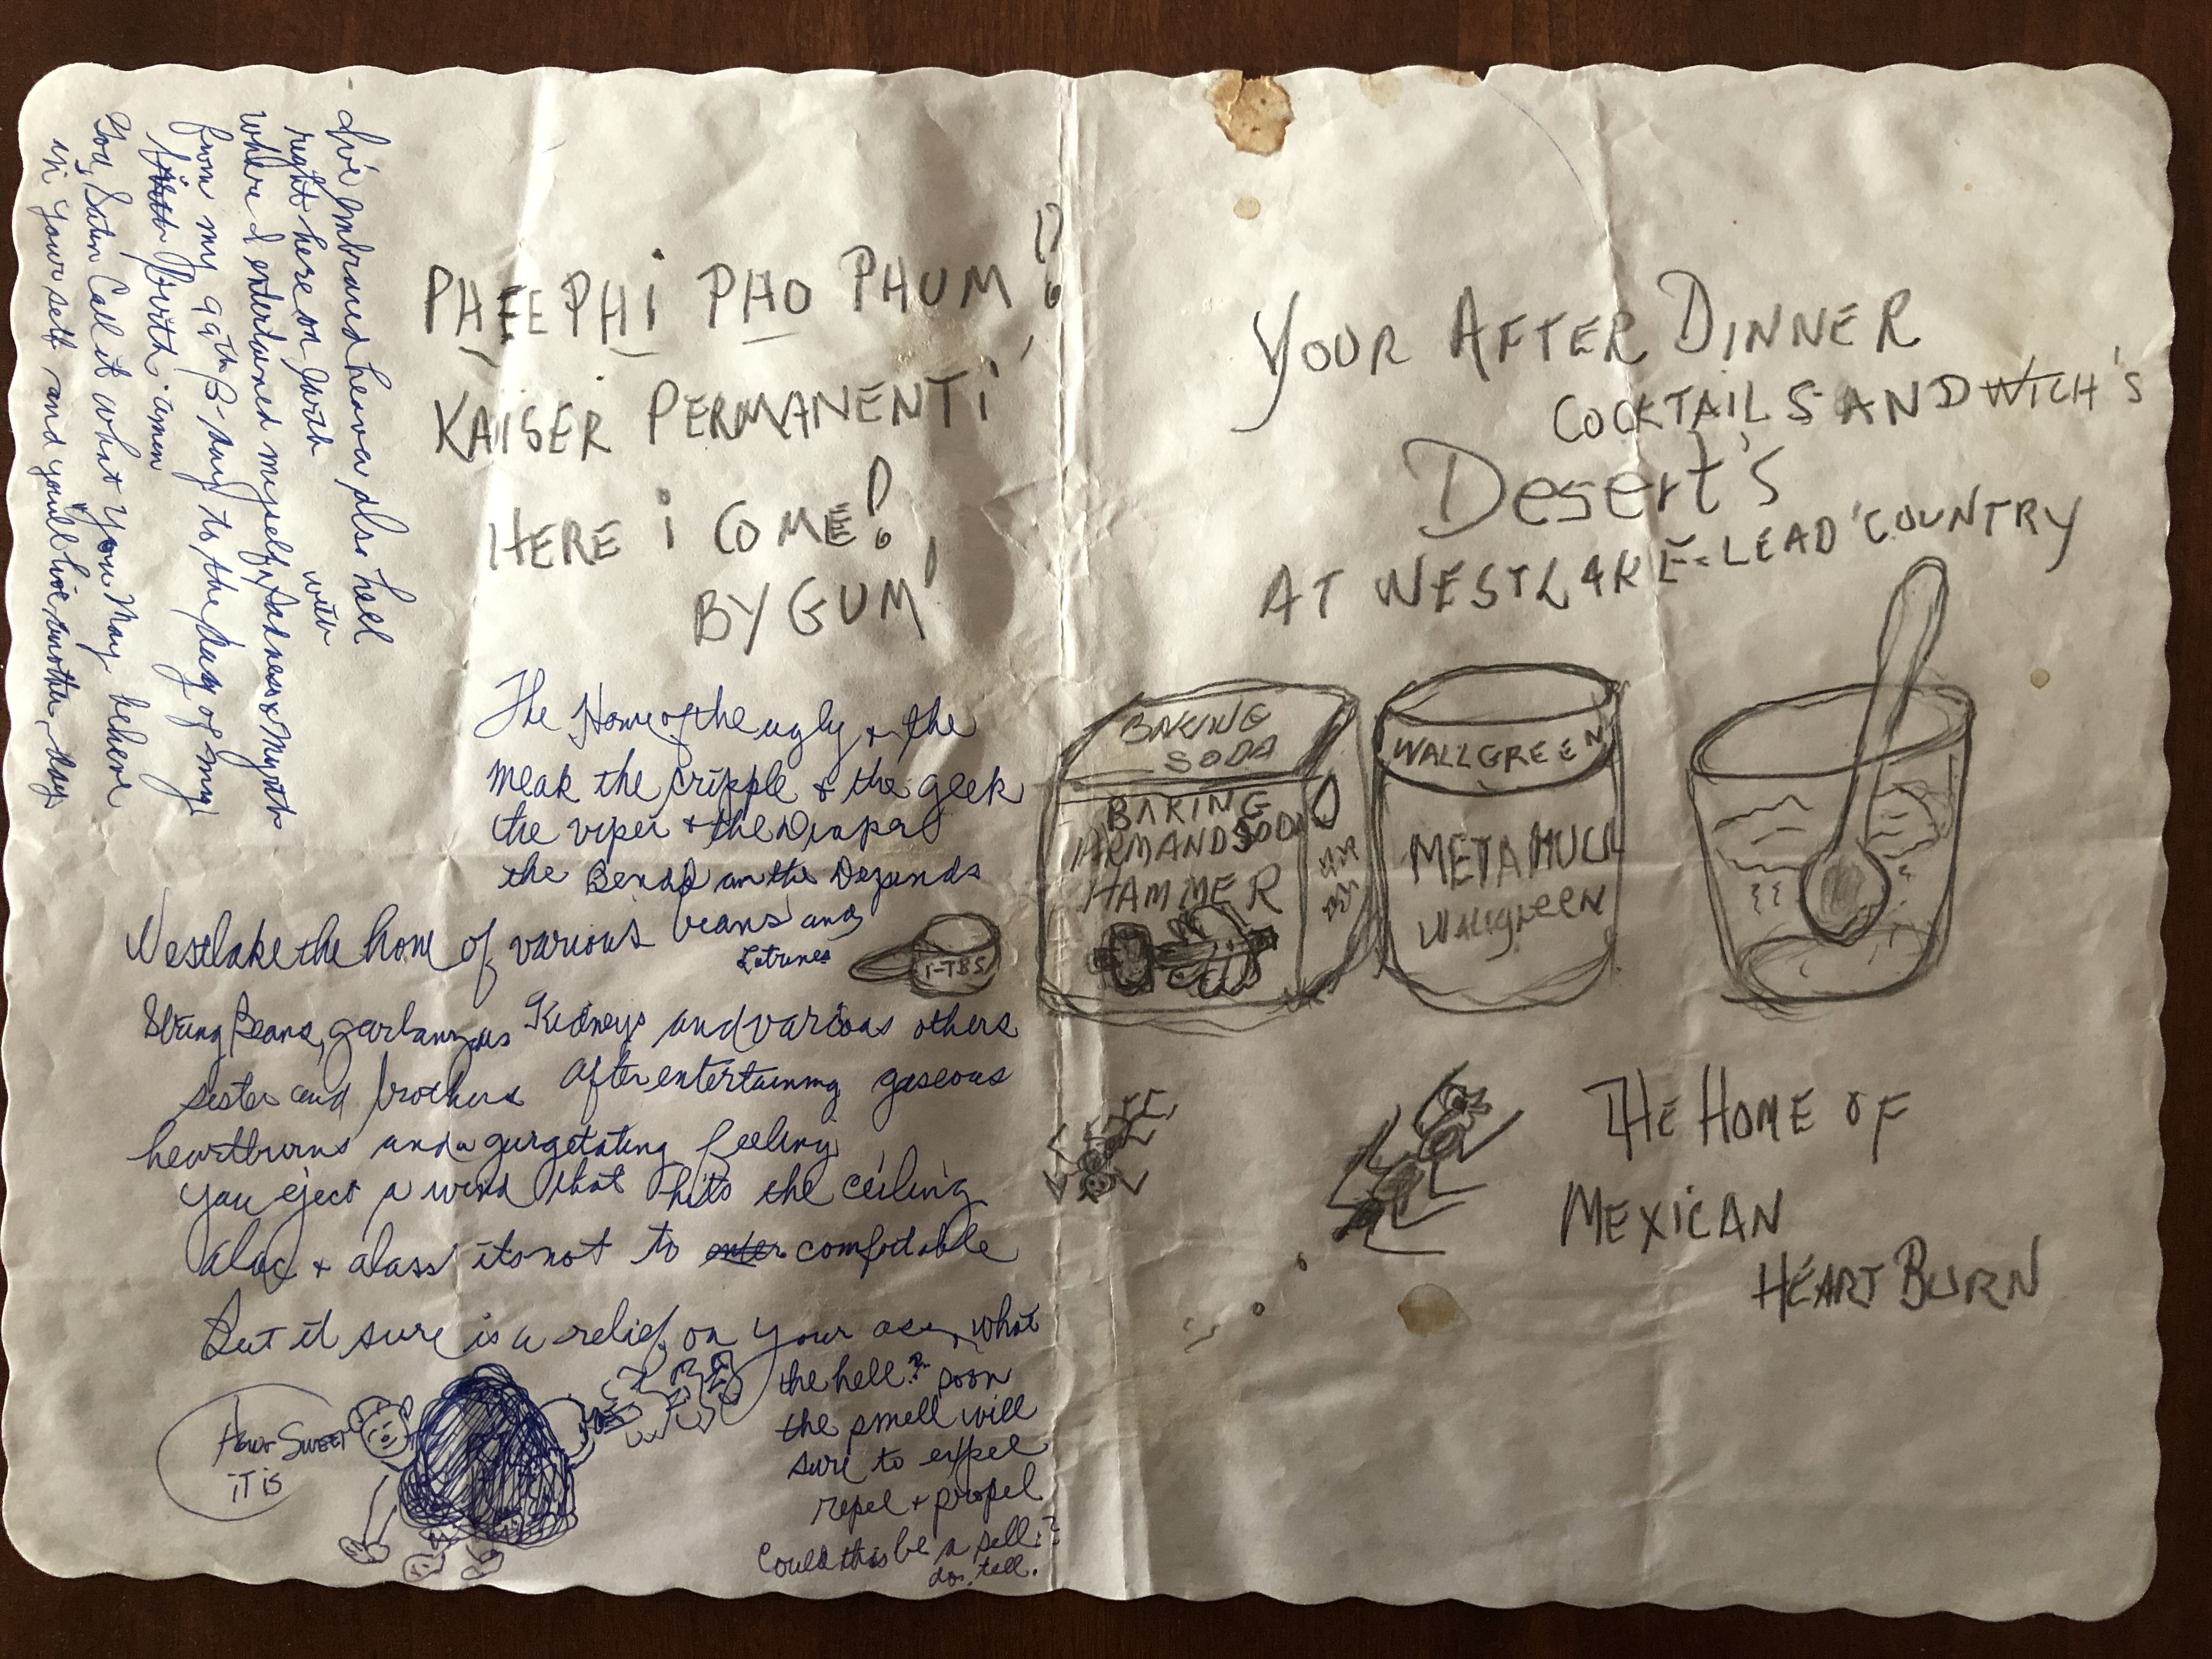 I've Imbraced heaven also hell
right here on Earth
where I entertained myself, Sadness & Myrth
with
from my 99th B-day to the day of my
Birth. amen
God, Satin Call it what You May believe
in your self and you'll live another day
PHEE PHI PHO PHUM!?
KAISER PERMANENTI
HERE i COME!
BY GUM!
The Home of the ugly & the
meak the cripple & the geek
the viper & the Diapers
the Bends in the Depends
Westlake the home of various beans and
Latrines
String Beans, garbanzoes Kidneys and various others
sister and brothers After entertaining gaseous
heartburns and a gurgetating feeling
you eject a wind that hits the ceiling
alac & alass its not to comfortable
But it sure is a relief on your ass, what
the hell? soon
the smell will
sure to expel
repel & propel
Could this be a sell?
do tell.
How Sweet
iT is
YOUR AFTER DINNER
COCKTAILS ANDWICH'S
Desert's
AT WESTLAKE-LEAD COUNTRY
BAKING
SODA
BAKING
SODA
ARM AND
HAMMER
1-TBS
WALLGREEN
METAMUCIL
WallGREEN
THE HOME OF
MEXICAN
HEART BURN